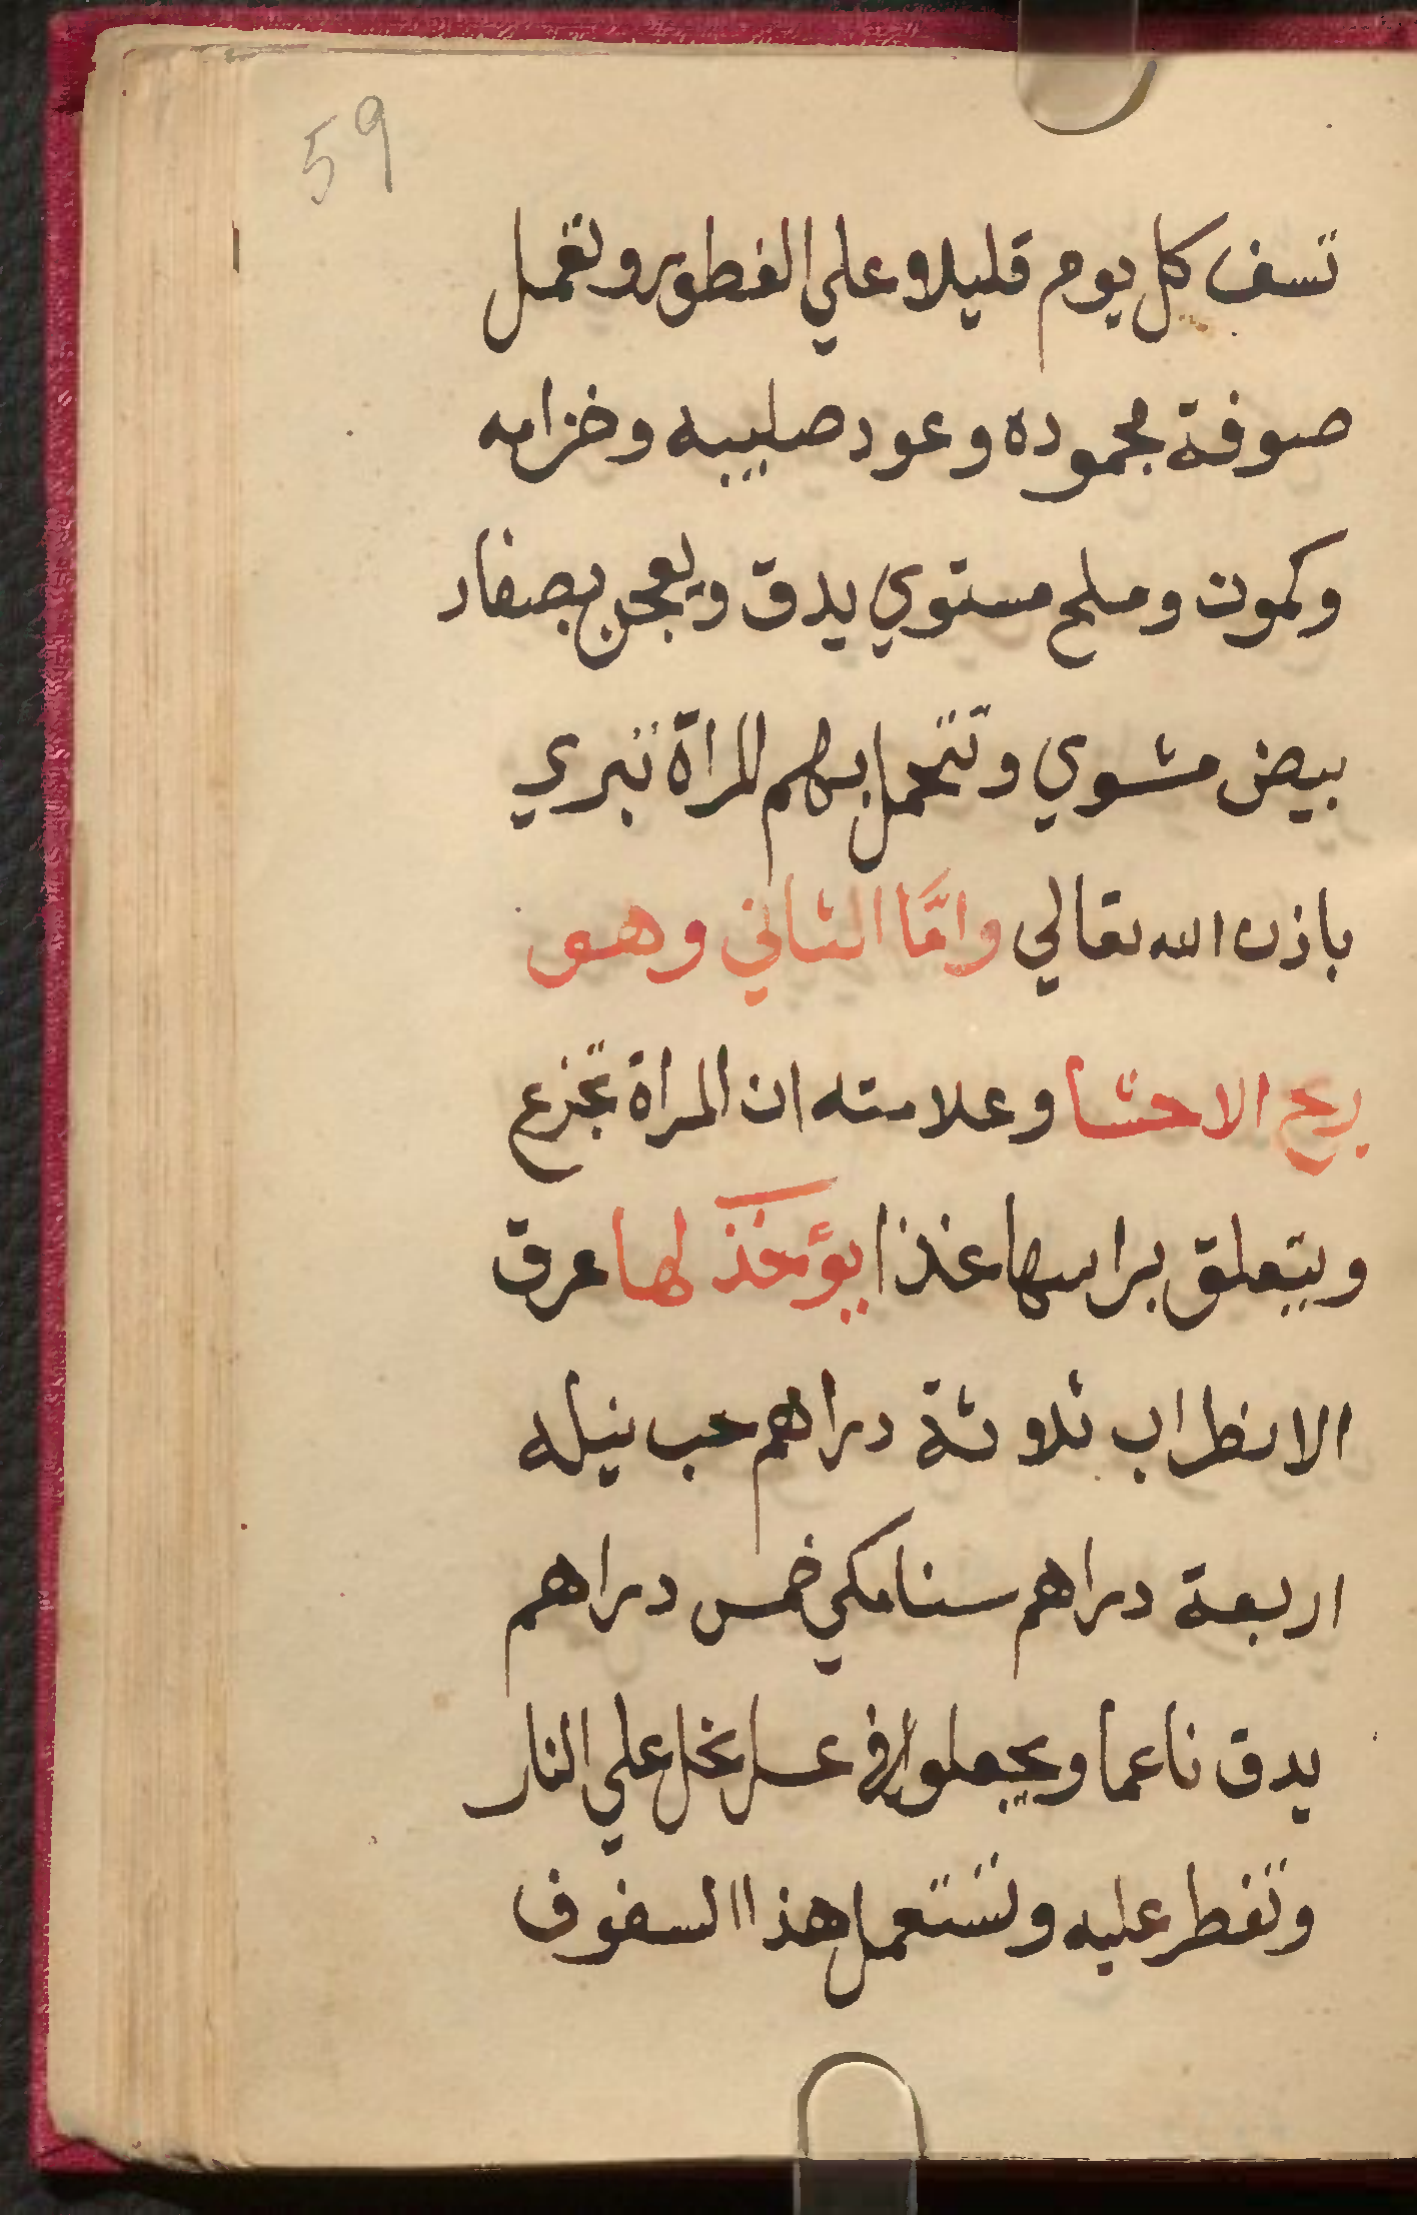 59
تسف كل يوم قليلا وعلي الفطور وتعمل
صوفة محموده وعود صليبه وخزامه
وكمون وملح مستوي يدق ويعجن بصفار
بيض مشوي وتتحمل بهم المراة تبري
باذن الله تعالي وامّا الثاني وهو
ريح الاحشا وعلامته ان المراة تجزع
ويتعلق براسها غذا يؤخذ لها عرق
الانظراب ثلاوثة دراهم حب نيله
اربعة دراهم سنامكي خمس دراهم
يدق ناعما ويجعلوا في عسل نحل علي النار
وتفطر عليه وتستعمل هذا السفوف